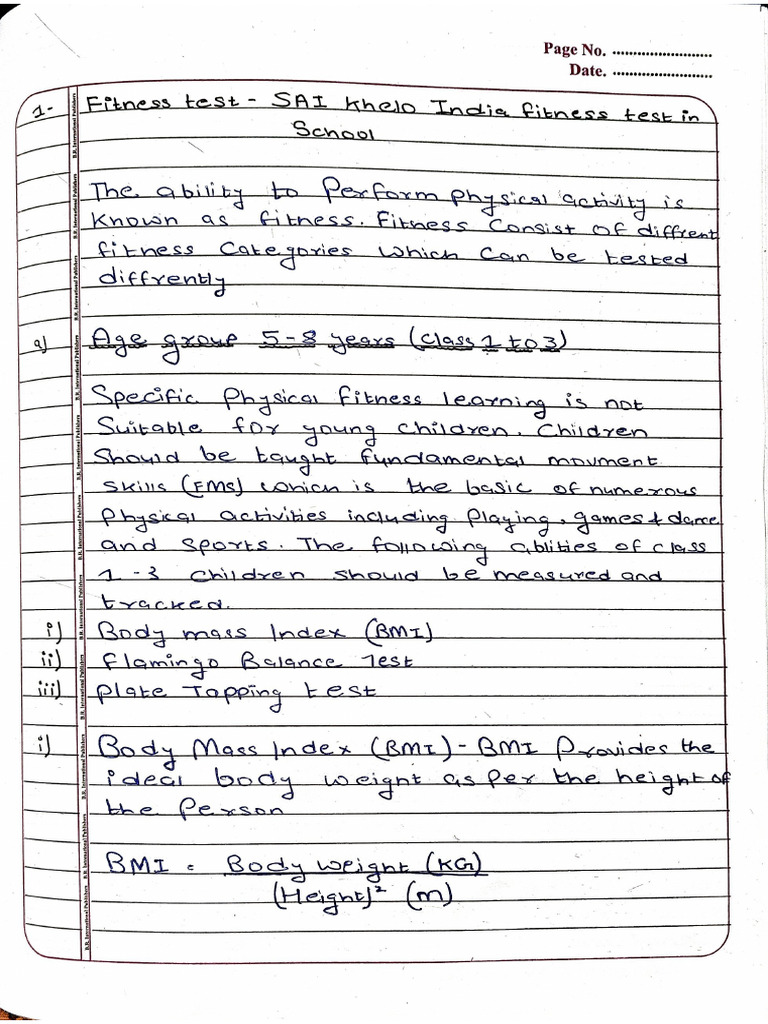 Page No. ........................
Date. ........................
1- Fitness test - SAI Khelo India fitness test in
School
The ability to Perform physical activity is
known as fitness. Fitness Consist of diffrent
fitness Categories which Can be tested
diffrently
a) Age group 5-8 years (class 1 to 3)
Specific Physical fitness learning is not
Suitable for young children. Children
Should be taught fundamental movment
skills (FMS) which is the basic of numerous
Physical activities including Playing, games & dance
and sports. The following ablities of class
1-3 children should be measured and
tracked.
i) Body mass Index (BMI)
ii) Flamingo Balance Test
iii) Plate Tapping test
i) Body Mass Index (BMI) - BMI Provides the
ideal body weight as per the height of
the Person
BMI = Body weight (KG)
(Height)² (m)
B.R. International Publishers
B.R. International Publishers
B.R. International Publishers
B.R. International Publishers
B.R. International Publishers
B.R. International Publishers
B.R. International Publishers
B.R. International Publishers
B.R. International Publishers
B.R. International Publishers
B.R. International Publishers